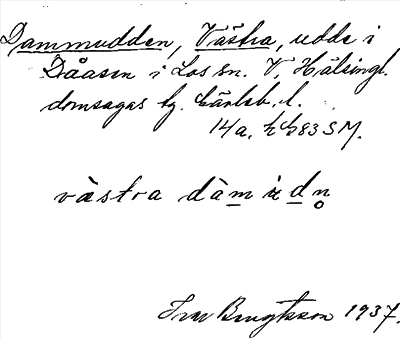 Dammudden, Västra, udde i
Dåasen i Los sn. V. Hälsingl.
domsagas tg. Gävleb. l.
14a. 83 SM.
västra dàm ùdn̥
Bengtsson 1937.